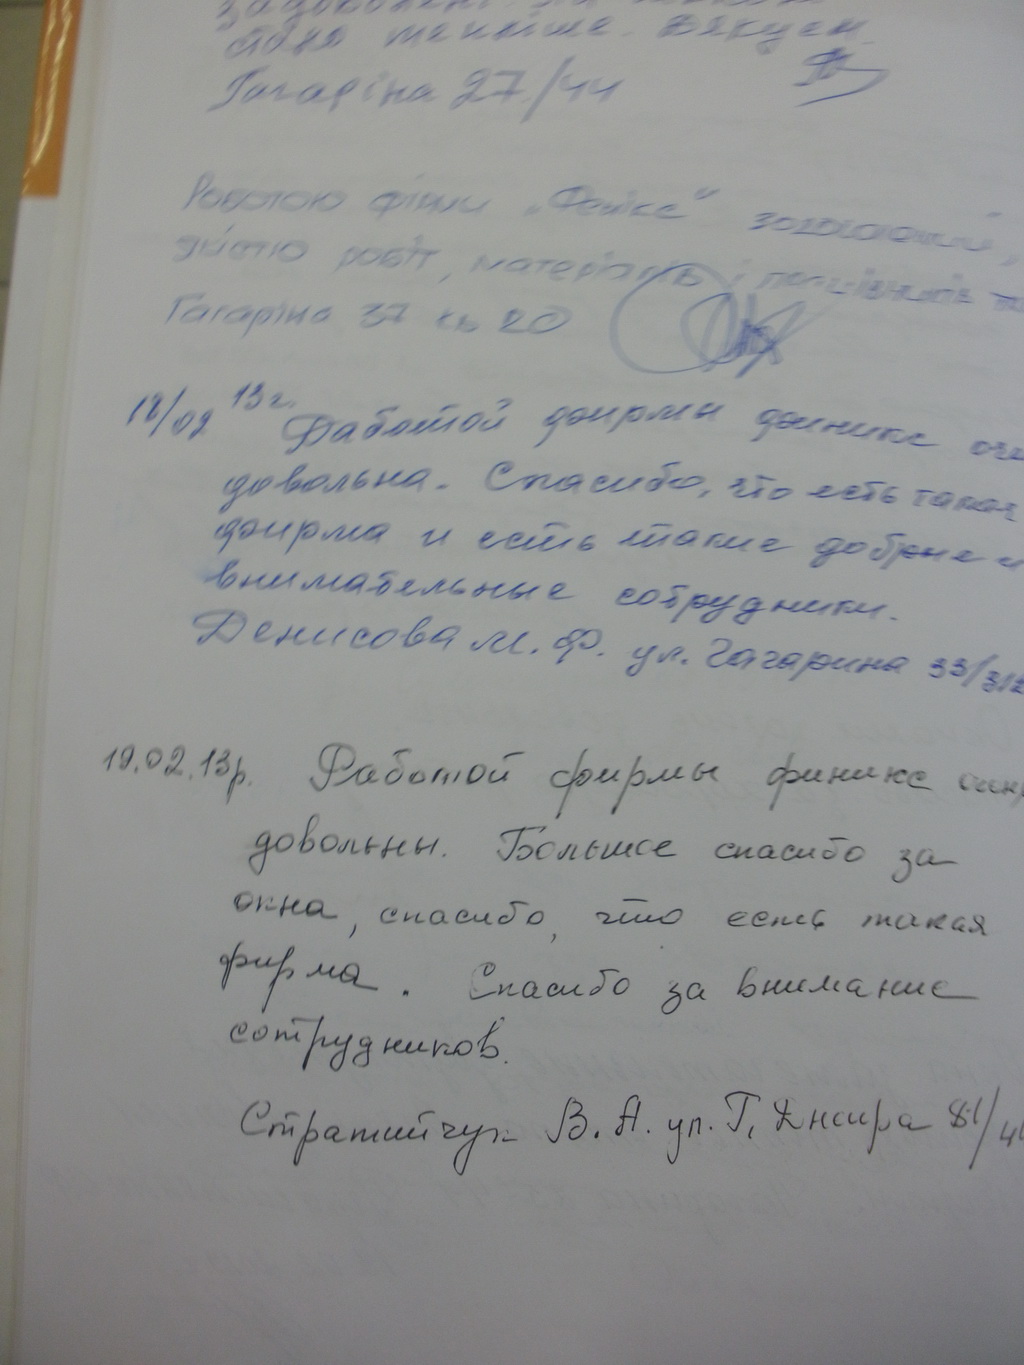 стало тепліше. Дякуєм
Гагаріна 27/44
Роботою фірми „Фенікс"
якістю робіт, матеріалів і
Гагаріна 37 кв 20
18/02 13г. Работой фирмы финикс
довольна. Спасибо, что есть такая
фирма и есть такие добрые и
внимательные сотрудники.
Денисова М. Ф. ул. Гагарина 33/
19.02.13р. Работой фирмы финикс
довольны. Большое спасибо за
окна, спасибо, что есть такая
фирма. Спасибо за внимание
сотрудников.
В. А. ул. Г. Днепра